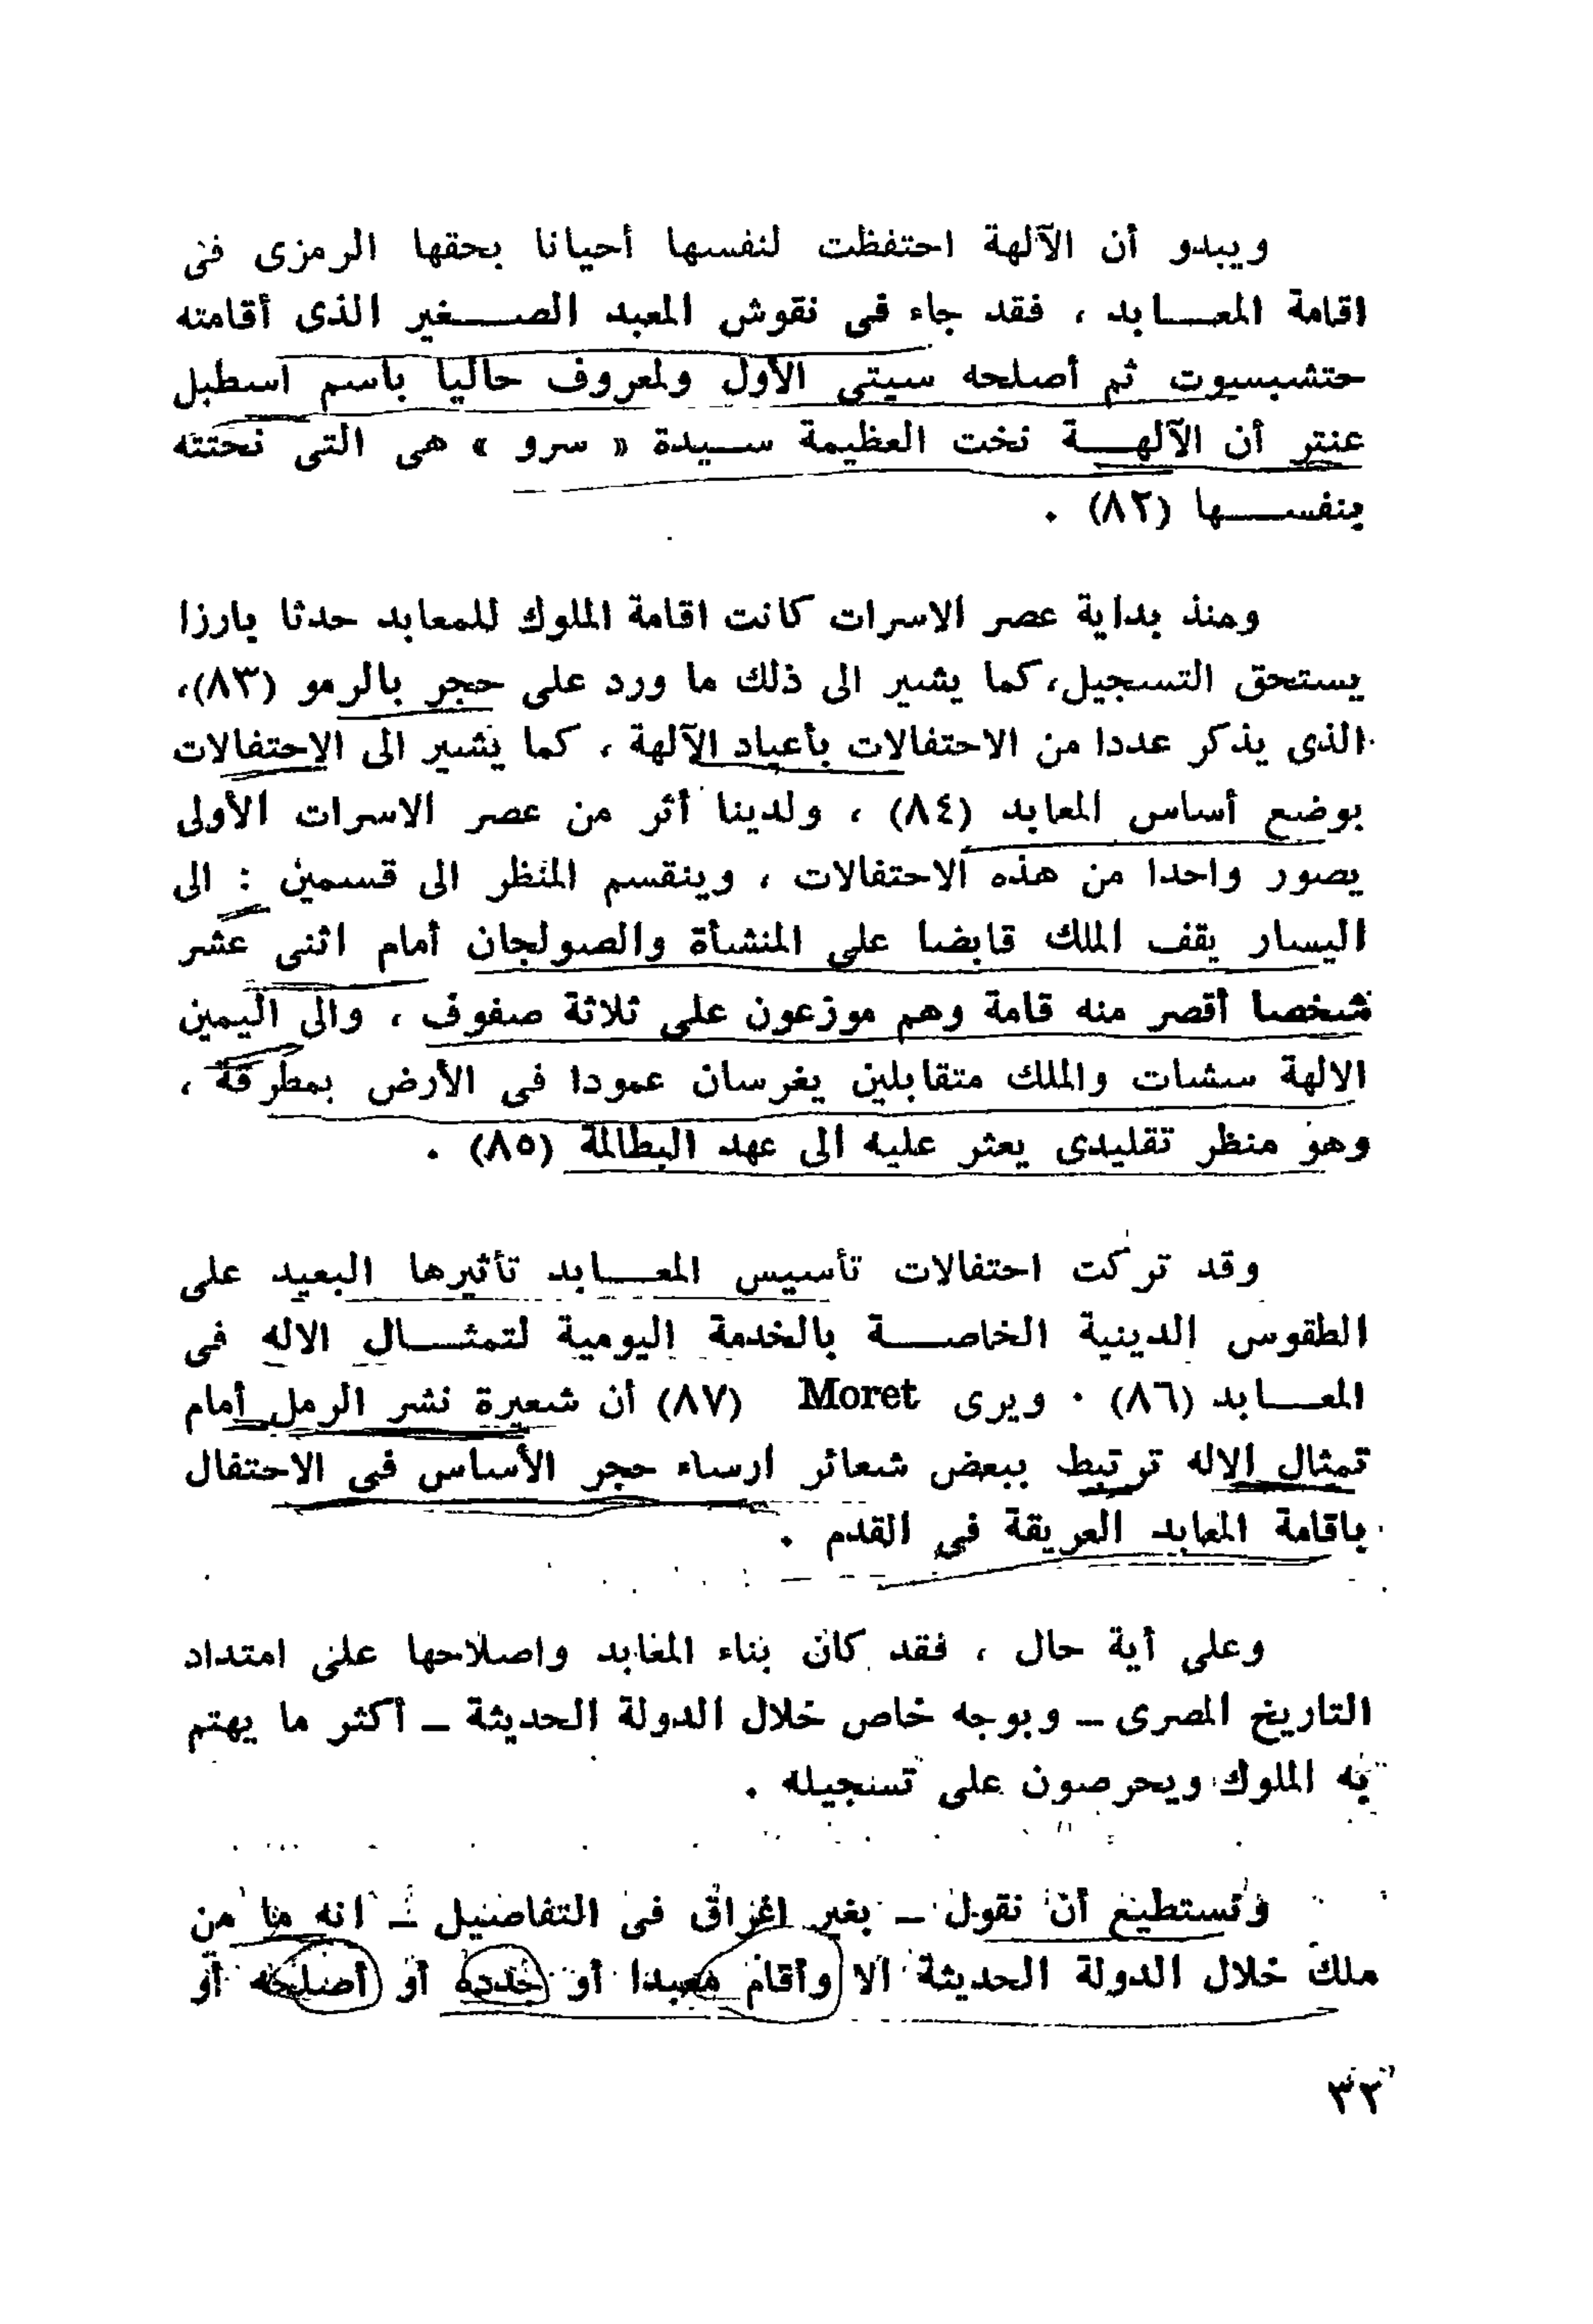 ويبدو أن الآلهة احتفظت لنفسها أحيانا بحقها الرمزى فى
اقامة المعابد ، فقد جاء فى نقوش المعبد الصغير الذى أقامته
حتشبسوت ثم أصلحه سيتى الأول ولمعروف حاليا باسم اسطبل
عنتر أن الآلهة نخت العظيمة سيدة « سرو » هى التى نحتته
بنفسها (٨٢) .
ومنذ بداية عصر الاسرات كانت اقامة الملوك للمعابد حدثا بارزا
يستحق التسجيل، كما يشير الى ذلك ما ورد على حجر بالرمو (٨٣)،
الذى يذكر عددا من الاحتفالات بأعياد الآلهة ، كما يشير الى الاحتفالات
بوضع أساس المعابد (٨٤) ، ولدينا أثر من عصر الاسرات الأولى
يصور واحدا من هذه الاحتفالات ، وينقسم المنظر الى قسمين : الى
اليسار يقف الملك قابضا على المنشأة والصولجان أمام اثنى عشر
شخصا أقصر منه قامة وهم موزعون على ثلاثة صفوف ، والى اليمين
الالهة سشات والملك متقابلين يغرسان عمودا فى الأرض بمطرقة ،
وهو منظر تقليدى يعثر عليه الى عهد البطالمة (٨٥) .
وقد تركت احتفالات تأسيس المعابد تأثيرها البعيد على
الطقوس الدينية الخاصة بالخدمة اليومية لتمثال الاله فى
المعابد (٨٦) . ويرى Moret (٨٧) أن شعيرة نشر الرمل أمام
تمثال الاله ترتبط ببعض شعائر ارساء حجر الأساس فى الاحتفال
باقامة المعابد العريقة فى القدم .
وعلى أية حال ، فقد كان بناء المعابد واصلاحها على امتداد
التاريخ المصرى – وبوجه خاص خلال الدولة الحديثة – أكثر ما يهتم
به الملوك ويحرصون على تسجيله .
ونستطيع أن نقول – بغير اغراق فى التفاصيل – انه ما من
ملك خلال الدولة الحديثة الا وأقام معبدا أو جدده أو أصلحه أو
٣٢